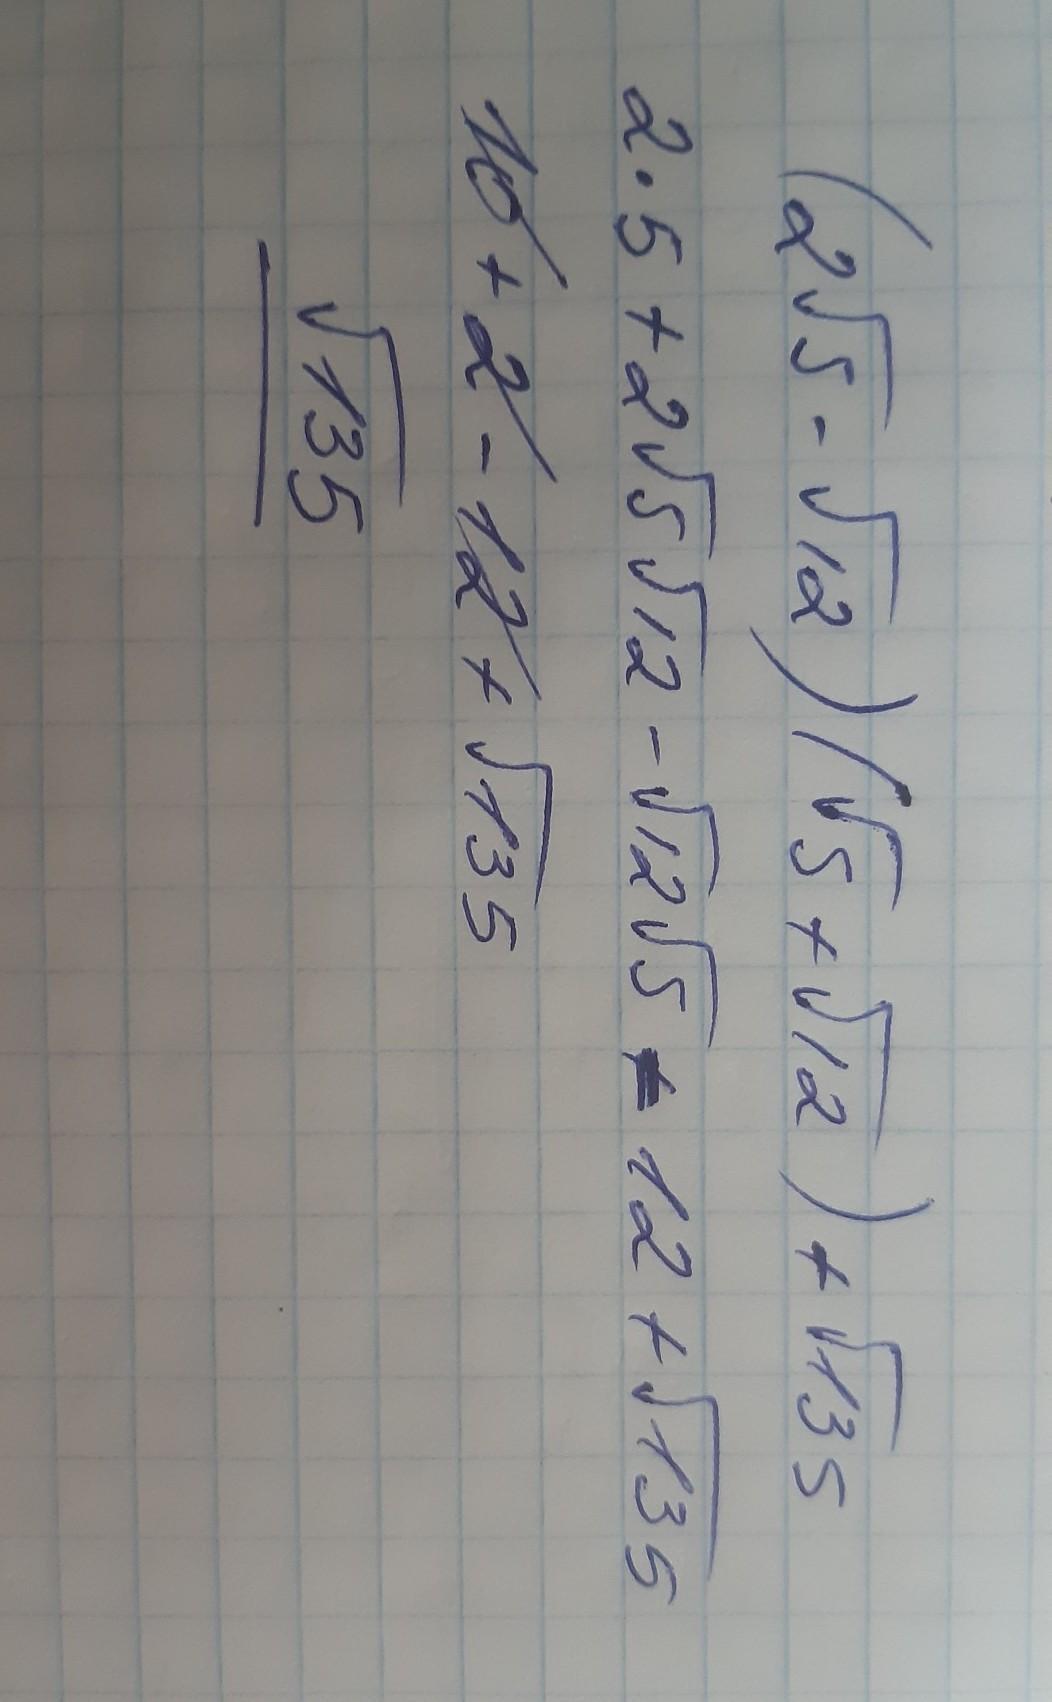 (2√5 - √12)(√5 + √12) + √135
2·5 + 2√5√12 - √12√5 - 12 + √135
10 + 2 - 12 + √135
√135